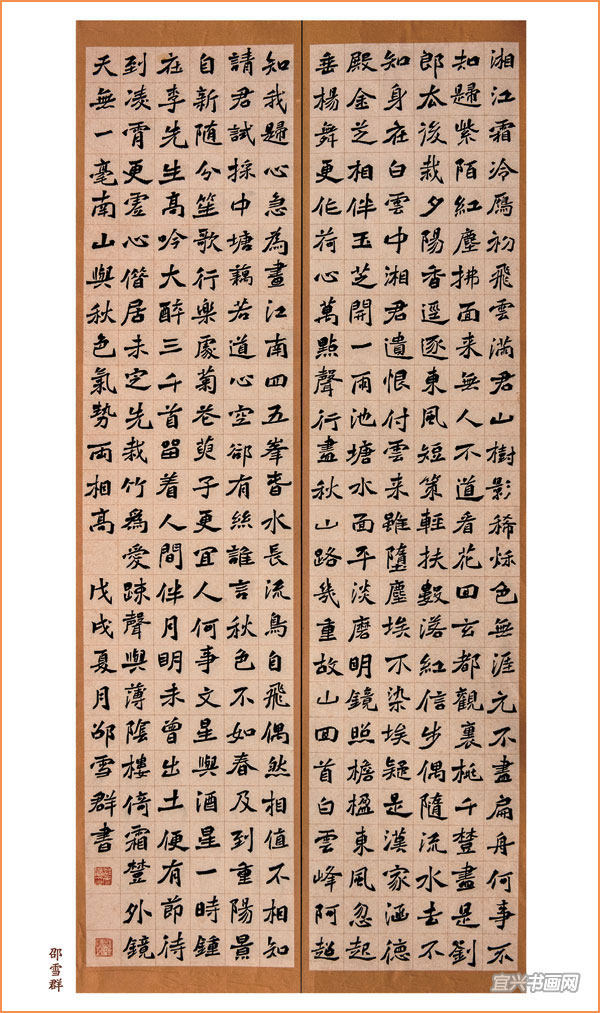 湘江霜冷鴈初飛雲滿君山樹影稀烁色無涯元不盡扁舟何事不
知歸紫陌紅塵拂面来無人不道看花回玄都觀裏桃千樹盡是劉
郎去後栽夕陽香逕逐東風短策輕扶數落紅信步偶隨流水去不
知身在白雲中湘君遺恨付雲来雖墮塵埃不染埃疑是漢家涵德
殿金芝相伴玉芝開一雨池塘水面平淡磨明鏡照檐楹東風忽起
垂楊舞更作荷心萬點聲行盡秋山路幾重故山回首白雲峰阿超
知我歸心急為畫江南四五峯春水長流鳥自飛偶然相值不相知
請君試採中塘藕若道心空卻有絲誰言秋色不如春及到重陽景
自新随分笙歌行樂處菊花萸子更宜人何事文星與酒星一時鍾
在李先生高吟大醉三千首留着人間伴月明未曾出土便有節待
到凌霄更虛心僭居未定先栽竹爲愛踈聲與薄陰樓倚霜樹外鏡
天無一毫南山與秋色氣勢兩相高 戊戌夏月邵雪群書
邵雪群
宜兴书画网